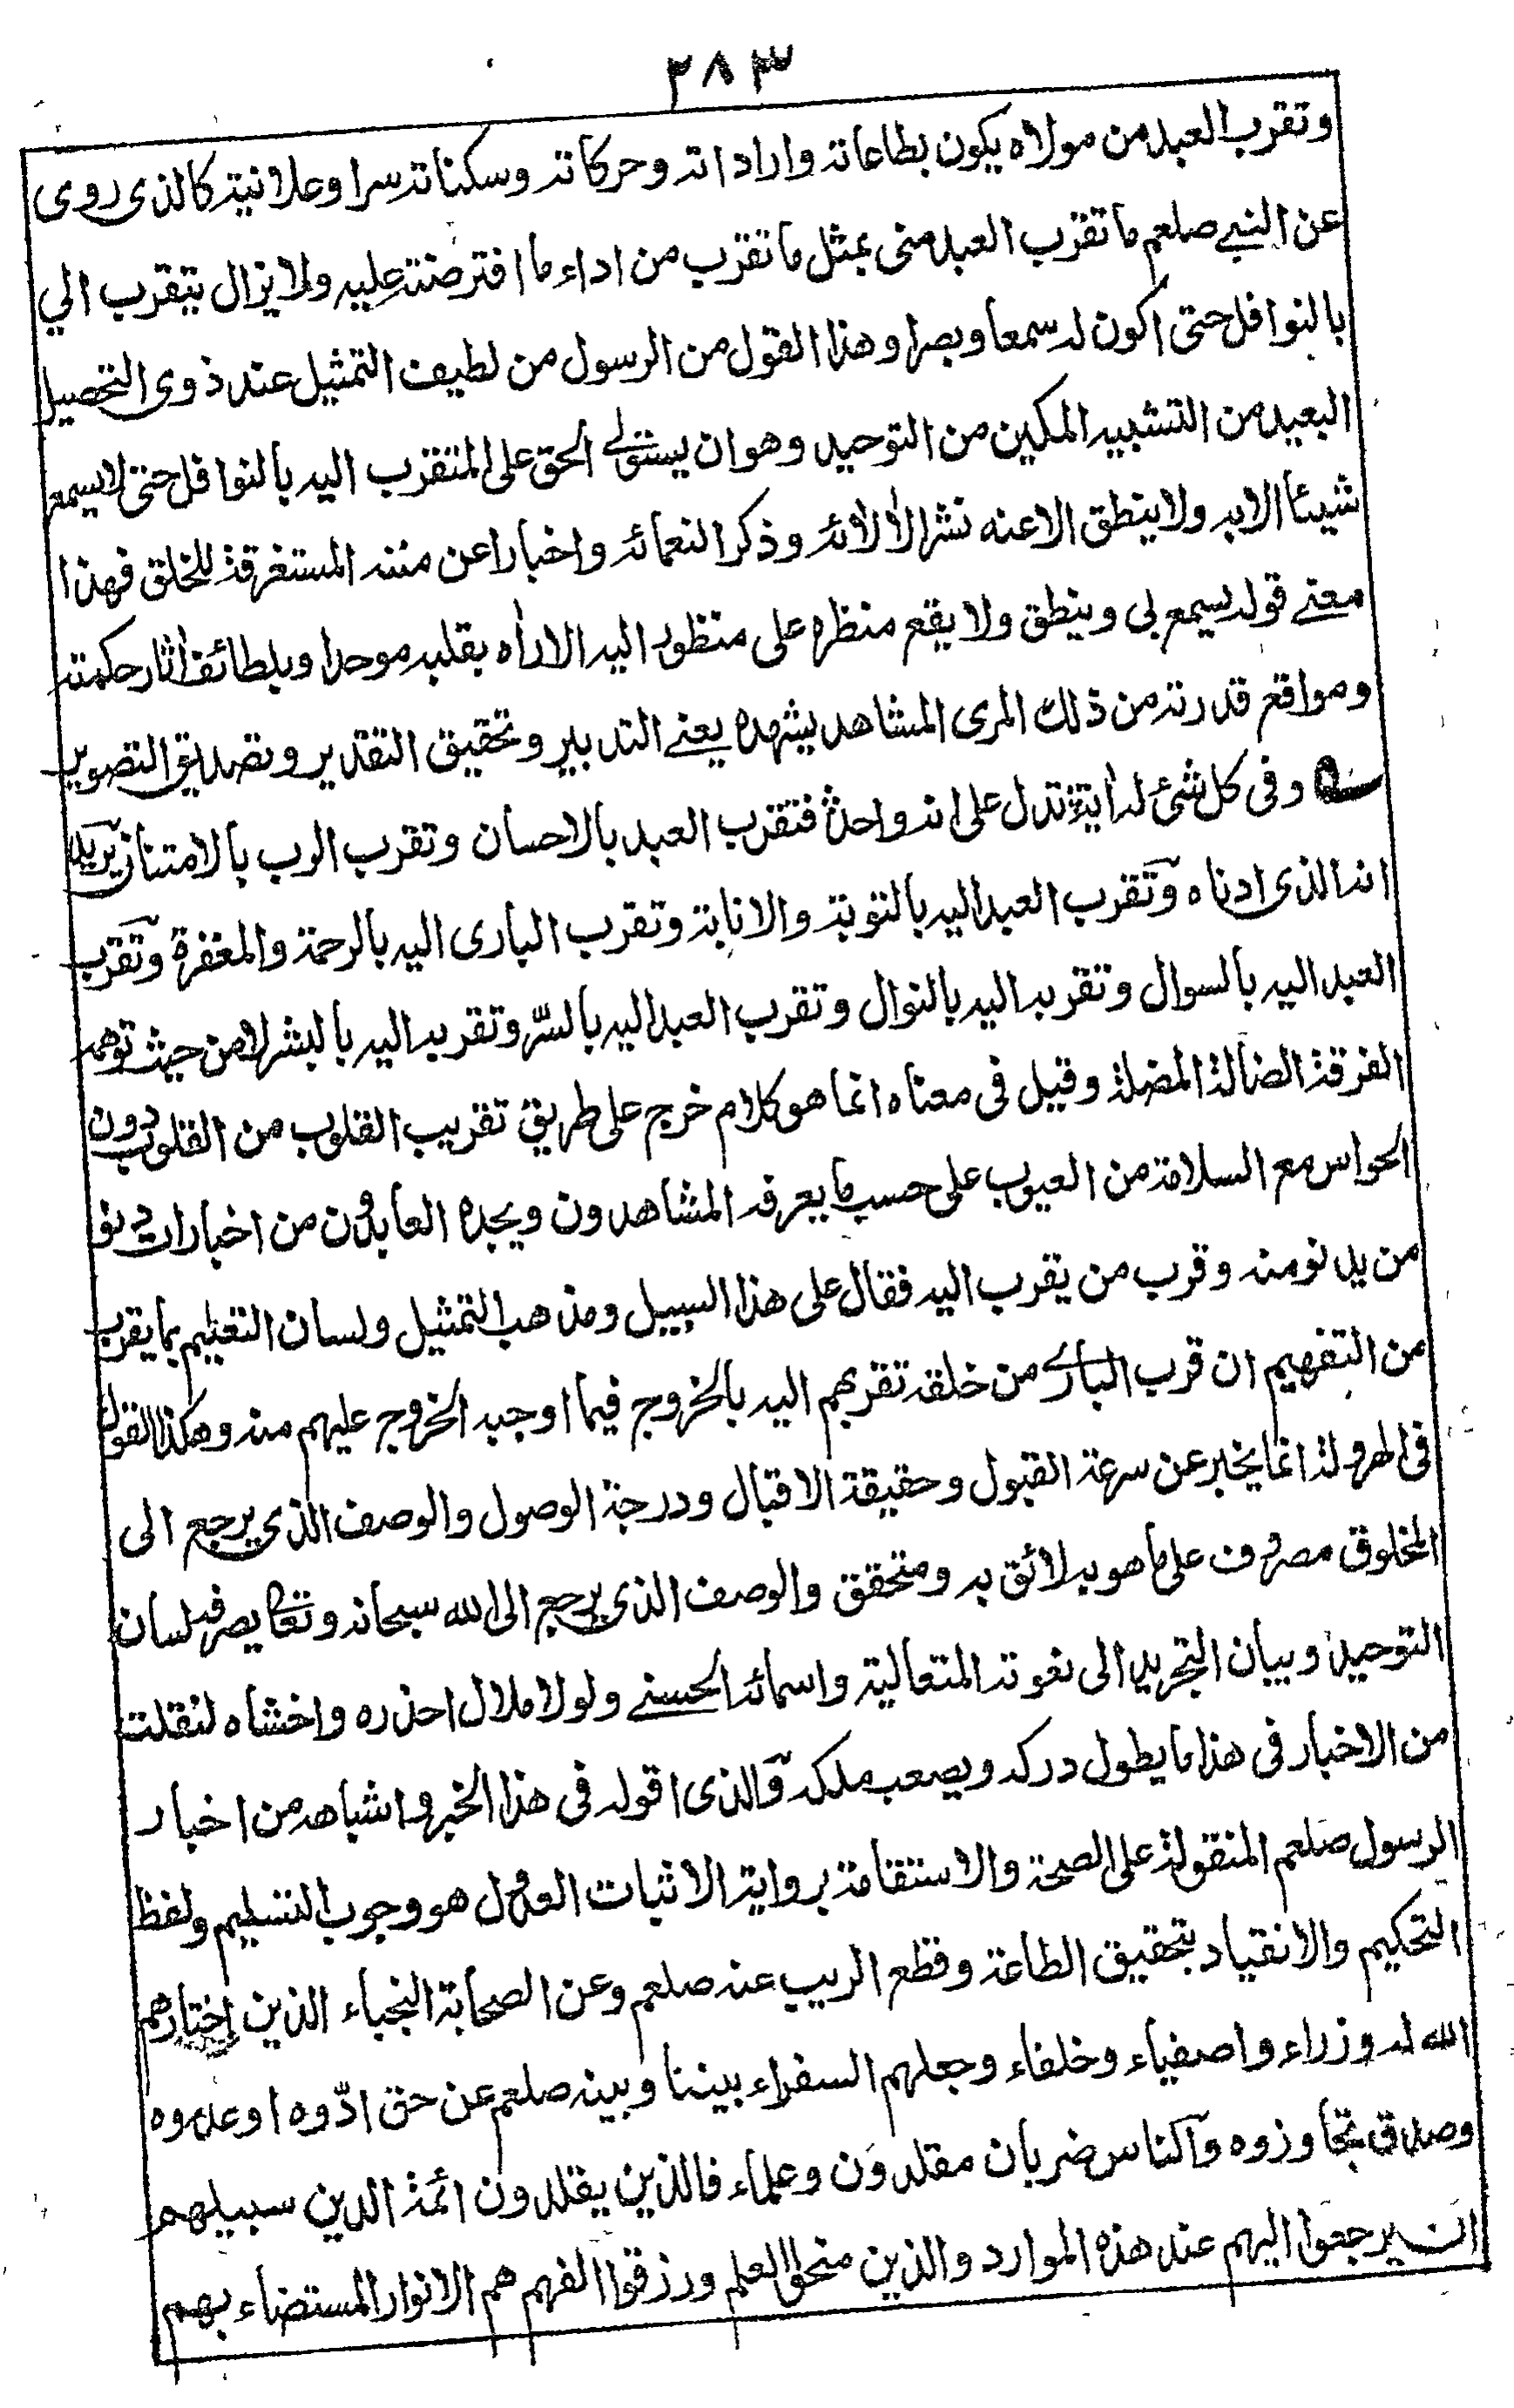 ٢٨٣
وتقرب العبد من مولاه يكون بطاعاته واراداته وحركاته وسكناته سرا وعلانية كالذى روى
عن النبي صلعم ما تقرب العبد منى بمثل ما تقرب من اداء ما افترضته عليه ولا يزال يتقرب الي
بالنوافل حتى اكون له سمعا وبصرا وهذا القول من الرسول من لطيف التمثيل عند ذوى التحصيل
البعيد من التشبيه المكين من التوحيد وهو ان يستولى الحق على المتقرب اليه بالنوافل حتى لا يسمع
شيئا الا به ولا ينطق الا عنه نشرا لألائه وذكرا لنعمائه واخبارا عن مننه المستغرقة للخلق فهذا
معنے قوله يسمع بى وينطق ولا يقع منظره على منظور اليه الا رأه بقلبه موحدا وبلطائف اثار حكمته
ومواقع قدرته من ذلك المرى المشاهد يشهده يعنے التدبير وتحقيق التقدير وتصديق التصوير
وفى كل شئ له اية تدل على انه واحد فتقرب العبد بالاحسان وتقرب الرب بالامتنان يريد
انه الذى ادناه وتقرب العبد اليه بالتوبة والانابة وتقرب البارى اليه بالرحمة والمغفرة وتقرب
العبد اليه بالسوال وتقربه اليه بالنوال وتقرب العبد اليه بالسّر وتقربه اليه بالبشر لا من حيث توهمه
الفرقة الضالة المضلة وقيل فى معناه انما هو كلام خرج على طريق تقريب القلوب من القلوب دون
الحواس مع السلامة من العيوب على حسب ما يعرفه المشاهدون ويجده العابدون من اخبارات دنو
من يدنو منه وقرب من يقرب اليه فقال على هذا السبيل ومذهب التمثيل ولسان التعليم بما يقرب
من التفهيم ان قرب البارے من خلقه تقربهم اليه بالخروج فيما اوجبه الخروج عليهم منه وهكذا القول
فى الهرولة انما يخبر عن سرعة القبول وحقيقة الاقبال ودرجة الوصول والوصف الذى يرجع الى
المخلوق مصروف على ما هو به لائق به ومتحقق والوصف الذى يرجع الى الله سبحانه وتعالى يصرفه لسان
التوحيد وبيان التجريد الى نعوته المتعالية واسمائه الحسنے ولولا ملال احذره واخشاه لنقلت
من الاخبار فى هذا ما يطول دركه ويصعب ملكه والذى اقوله فى هذا الخبر واشباهه من اخبار
الرسول صلعم المنقولة على الصحة والاستقامة برواية الاثبات العدول هو وجوب التسليم ولفظ
التحكيم والانقياد بتحقيق الطاعة وقطع الريب عنه صلعم وعن الصحابة النجباء الذين اختارهم
الله له وزراء واصفياء وخلفاء وجعلهم السفراء بيننا وبينه صلعم عن حق ادّوه او عدوه
وصدق تجاوزوه والناس ضربان مقلدون وعلماء فالذين يقلدون ائمة الدين سبيلهم
ان يرجعوا اليهم عند هذه الموارد والذين منحوا العلم ورزقوا الفهم هم الانوار المستضاء بهم